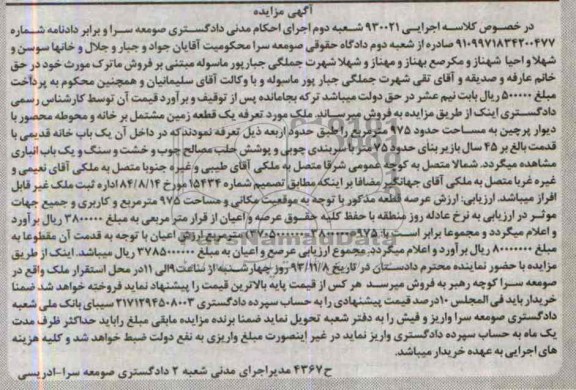 آگهی مزایده
در خصوص کلاسه اجرایی ۹۳۰۰۲۱ شعبه دوم اجرای احکام مدنی دادگستری صومعه سرا و برابر دادنامه شماره
۹۱۰۹۹۷۱۸۳۴۲۰۰۴۷۷ صادره از شعبه دوم دادگاه حقوقی صومعه سرا محکومیت آقایان جواد و جبار و جلال و خانمها سوسن و
شهلا و احیا شهناز و مکرصع بهناز و مهناز و شهلا شهرت جملگی جبارپور ماسوله مبتنی بر فروش ماترک مورث خود در حق
خانم عارفه و صدیقه و آقای تقی شهرت جملگی جبار پور ماسوله و با وکالت آقای سلیمانیان و همچنین محکوم به پرداخت
مبلغ ۵۰۰۰۰۰ ریال بابت نیم عشر در حق دولت میباشد ترکه بجامانده پس از توقیف و برآورد قیمت آن توسط کارشناس رسمی
دادگستری اینک از طریق مزایده به فروش میرساند. ملک مورد تعرفه یک قطعه زمین مشتمل بر خانه و محوطه محصور با
دیوار پرچین به مساحت حدود ۹۷۵ مترمربع را طبق حدود اربعه ذیل تعرفه نمودند که در داخل آن یک باب خانه قدیمی با
قدمت بالغ بر ۴۵ سال بازیر بنای حدود ۷۵متر با سربندی چوبی و پوشش حلب مصالح چوب و خشت و سنگ و یک باب انباری
مشاهده میگردد. شمالا متصل به کوچه عمومی شرقا متصل به ملکی آقای طیبی و غیره جنوبا متصل به ملکی آقای نعیمی و
غیره غربا متصل به ملکی آقای جهانگیر مضافا بر اینکه مطابق تصمیم شماره ۱۵۴۳۴مورخ ۸۴/۸/۱۴ اداره ثبت ملک غیر قابل
افراز میباشد. ارزیابی: ارزش عرصه قطعه مذکور با توجه به موقعیت مکانی و مساحت ۹۷۵ مترمربع و کاربری و جمیع جهات
موثر در ارزیابی به نرخ عادله روز منطقه با حفظ کلیه حقوق عرصه و اعیان از قرار متر مربعی به مبلغ ۳۸۰۰۰۰۰ ریال برآورد
و اعلام میگردد و مجموعا برابر است با: ۳۷۰۵۰۰۰۰۰۰=۳۸۰۰۰۰۰*۹۷۵مترمربع ارزش اعیان با توجه به قدمت آن مقطوعا به
مبلغ ۸۰۰۰۰۰۰۰ ریال برآورد و اعلام میگردد. مجموع ارزیابی عرصه و اعیان به مبلغ ۳۷۸۵۰۰۰۰۰۰ ریال میباشد. اینک از طریق
مزایده با حضور نماینده محترم دادستان در تاریخ ۹۳/۱۱/۸ روز چهارشنبه از ساعت ۹الی ۱۱در محل استقرار ملک واقع در
صومعه سرا کوچه رهبر به فروش میرسد هر کس از قیمت پایه بالاترین قیمت را پیشنهاد نماید فروخته خواهد شد ضمنا
خریدار باید فی المجلس ۱۰درصد قیمت پیشنهادی را به حساب سپرده دادگستری ۲۱۷۱۲۹۴۵۰۸۰۰۳ سیبای بانک ملی شعبه
دادگستری صومعه سرا واریز و فیش را به دفتر شعبه تحویل نماید ضمنا برنده مزایده مابقی مبلغ راباید حداکثر ظرف مدت
یک ماه به حساب سپرده دادگستری واریز نماید در غیر اینصورت مبلغ واریزی به نفع دولت ضبط خواهد شد و کلیه هزینه
های اجرایی به عهده خریدار میباشد.
ح۴۳۶۷ مدیراجرای مدنی شعبه ۲ دادگستری صومعه سرا-ادریسی